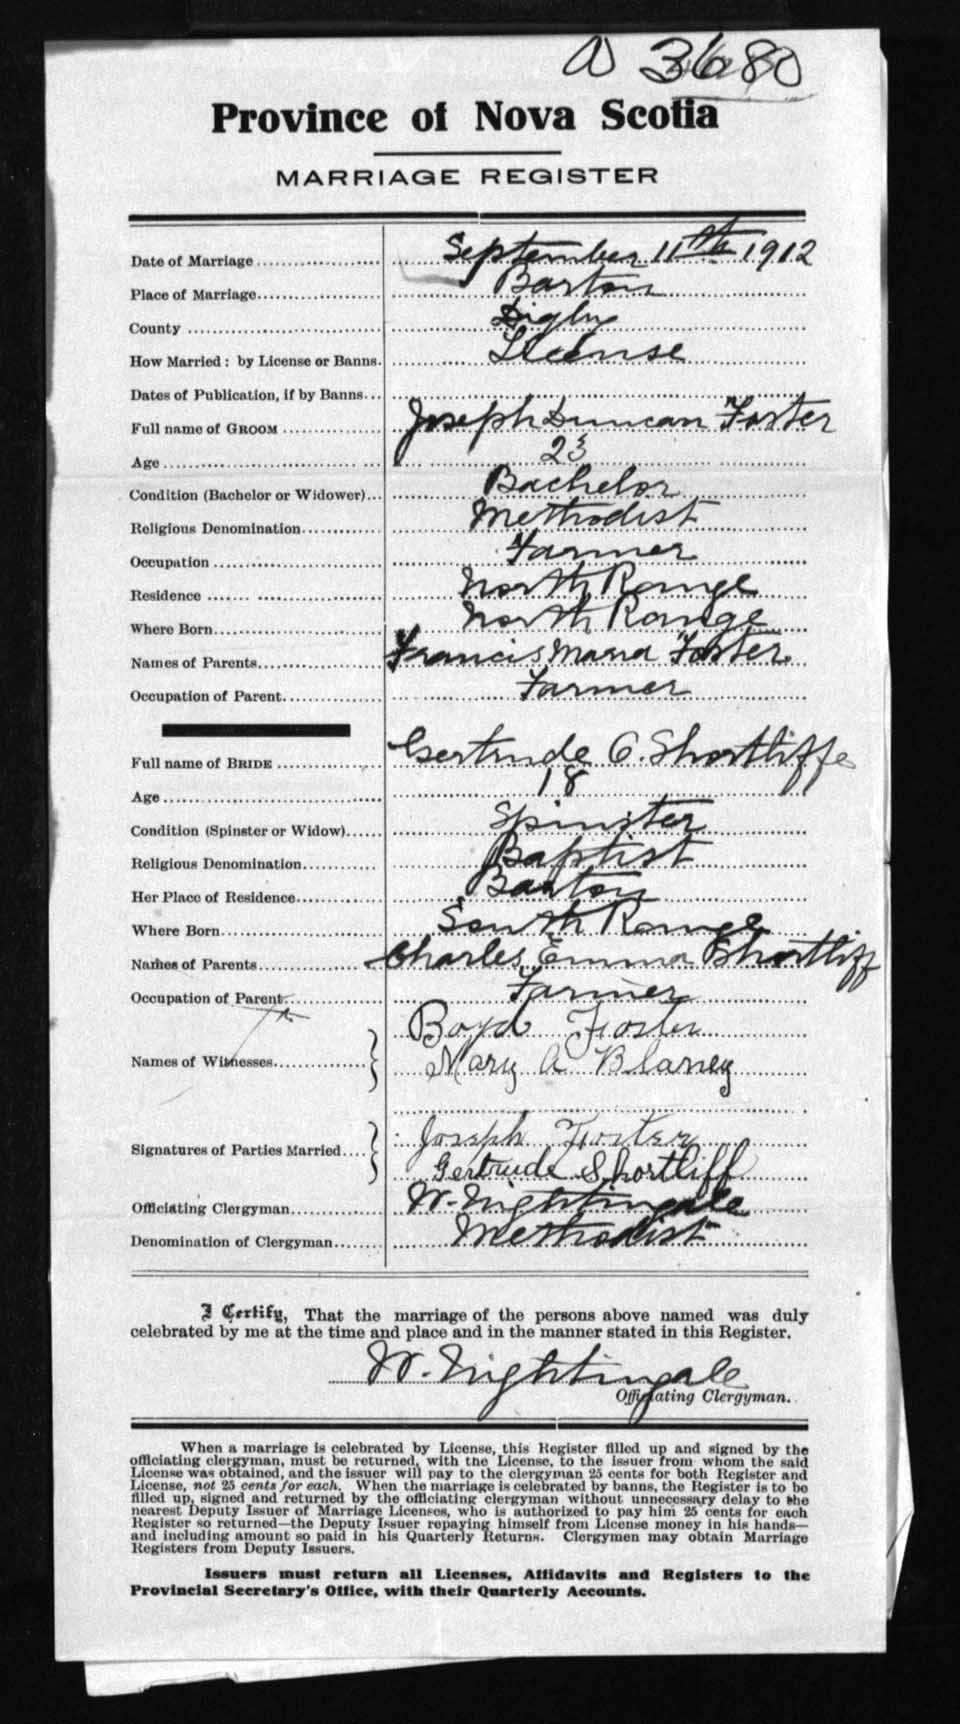 a 3680
Province of Nova Scotia
MARRIAGE REGISTER
Date of Marriage September 11th 1912
Place of Marriage Barton
County Digby
How Married: by License or Banns. License
Dates of Publication, if by Banns
Full name of GROOM Joseph Duncan Foster
Age 23
Condition (Bachelor or Widower) Bachelor
Religious Denomination Methodist
Occupation Farmer
Residence North Range
Where Born North Range
Names of Parents Francis Foster
Occupation of Parent Farmer
Full name of BRIDE Gertrude C. Shortliffe
Age 18
Condition (Spinster or Widow) Spinster
Religious Denomination Baptist
Her Place of Residence Barton
Where Born South Range
Names of Parents Charles Emma Shortliff
Occupation of Parent Farmer
Names of Witnesses Boyd Foster
Mary A Blaney
Signatures of Parties Married Joseph Foster
Gertrude Shortliff
Officiating Clergyman W. Nightingale
Denomination of Clergyman Methodist
I Certify, That the marriage of the persons above named was duly
celebrated by me at the time and place and in the manner stated in this Register.
W. Nightingale
Officiating Clergyman.
When a marriage is celebrated by License, this Register filled up and signed by the
officiating clergyman, must be returned, with the License, to the issuer from whom the said
License was obtained, and the issuer will pay to the clergyman 25 cents for both Register and
License, not 25 cents for each. When the marriage is celebrated by banns, the Register is to be
filled up, signed and returned by the officiating clergyman without unnecessary delay to the
nearest Deputy Issuer of Marriage Licenses, who is authorized to pay him 25 cents for each
Register so returned—the Deputy Issuer repaying himself from License money in his hands—
and including amount so paid in his Quarterly Returns. Clergymen may obtain Marriage
Registers from Deputy Issuers.
Issuers must return all Licenses, Affidavits and Registers to the
Provincial Secretary's Office, with their Quarterly Accounts.